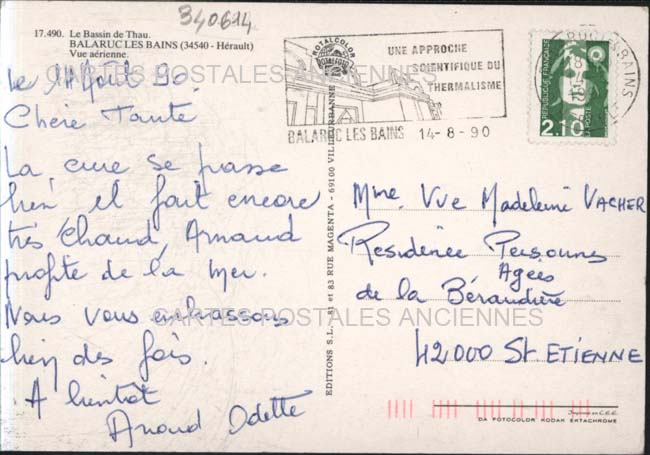 340614
17.490. Le Bassin de Thau.
BALARUC LES BAINS (34540 - Hérault)
Vue aérienne.
Le 14 Août 90.
Chère Tante
La cure se passe
bien il fait encore
très chaud, Arnaud
profite de la mer.
Nous vous embrassons
bien des fois.
A bientôt
Arnaud Odette
ROTALCOLOR
ROTALFOTO
UNE APPROCHE
SCIENTIFIQUE DU
THERMALISME
BALARUC LES BAINS 14-8-90
RÉPUBLIQUE FRANÇAISE
LA POSTE
2,10
EDITIONS S.L. - 81 et 83 RUE MAGENTA - 69100 VILLEURBANNE
Mme Vve Madeleine VACHER
Residence Personnes
Agées
de la Bérandière
42000 St ETIENNE
Imprimé en C.E.E.
DA FOTOCOLOR KODAK EKTACHROME
CARTES POSTALES ANCIENNES
CARTES POSTALES ANCIENNES